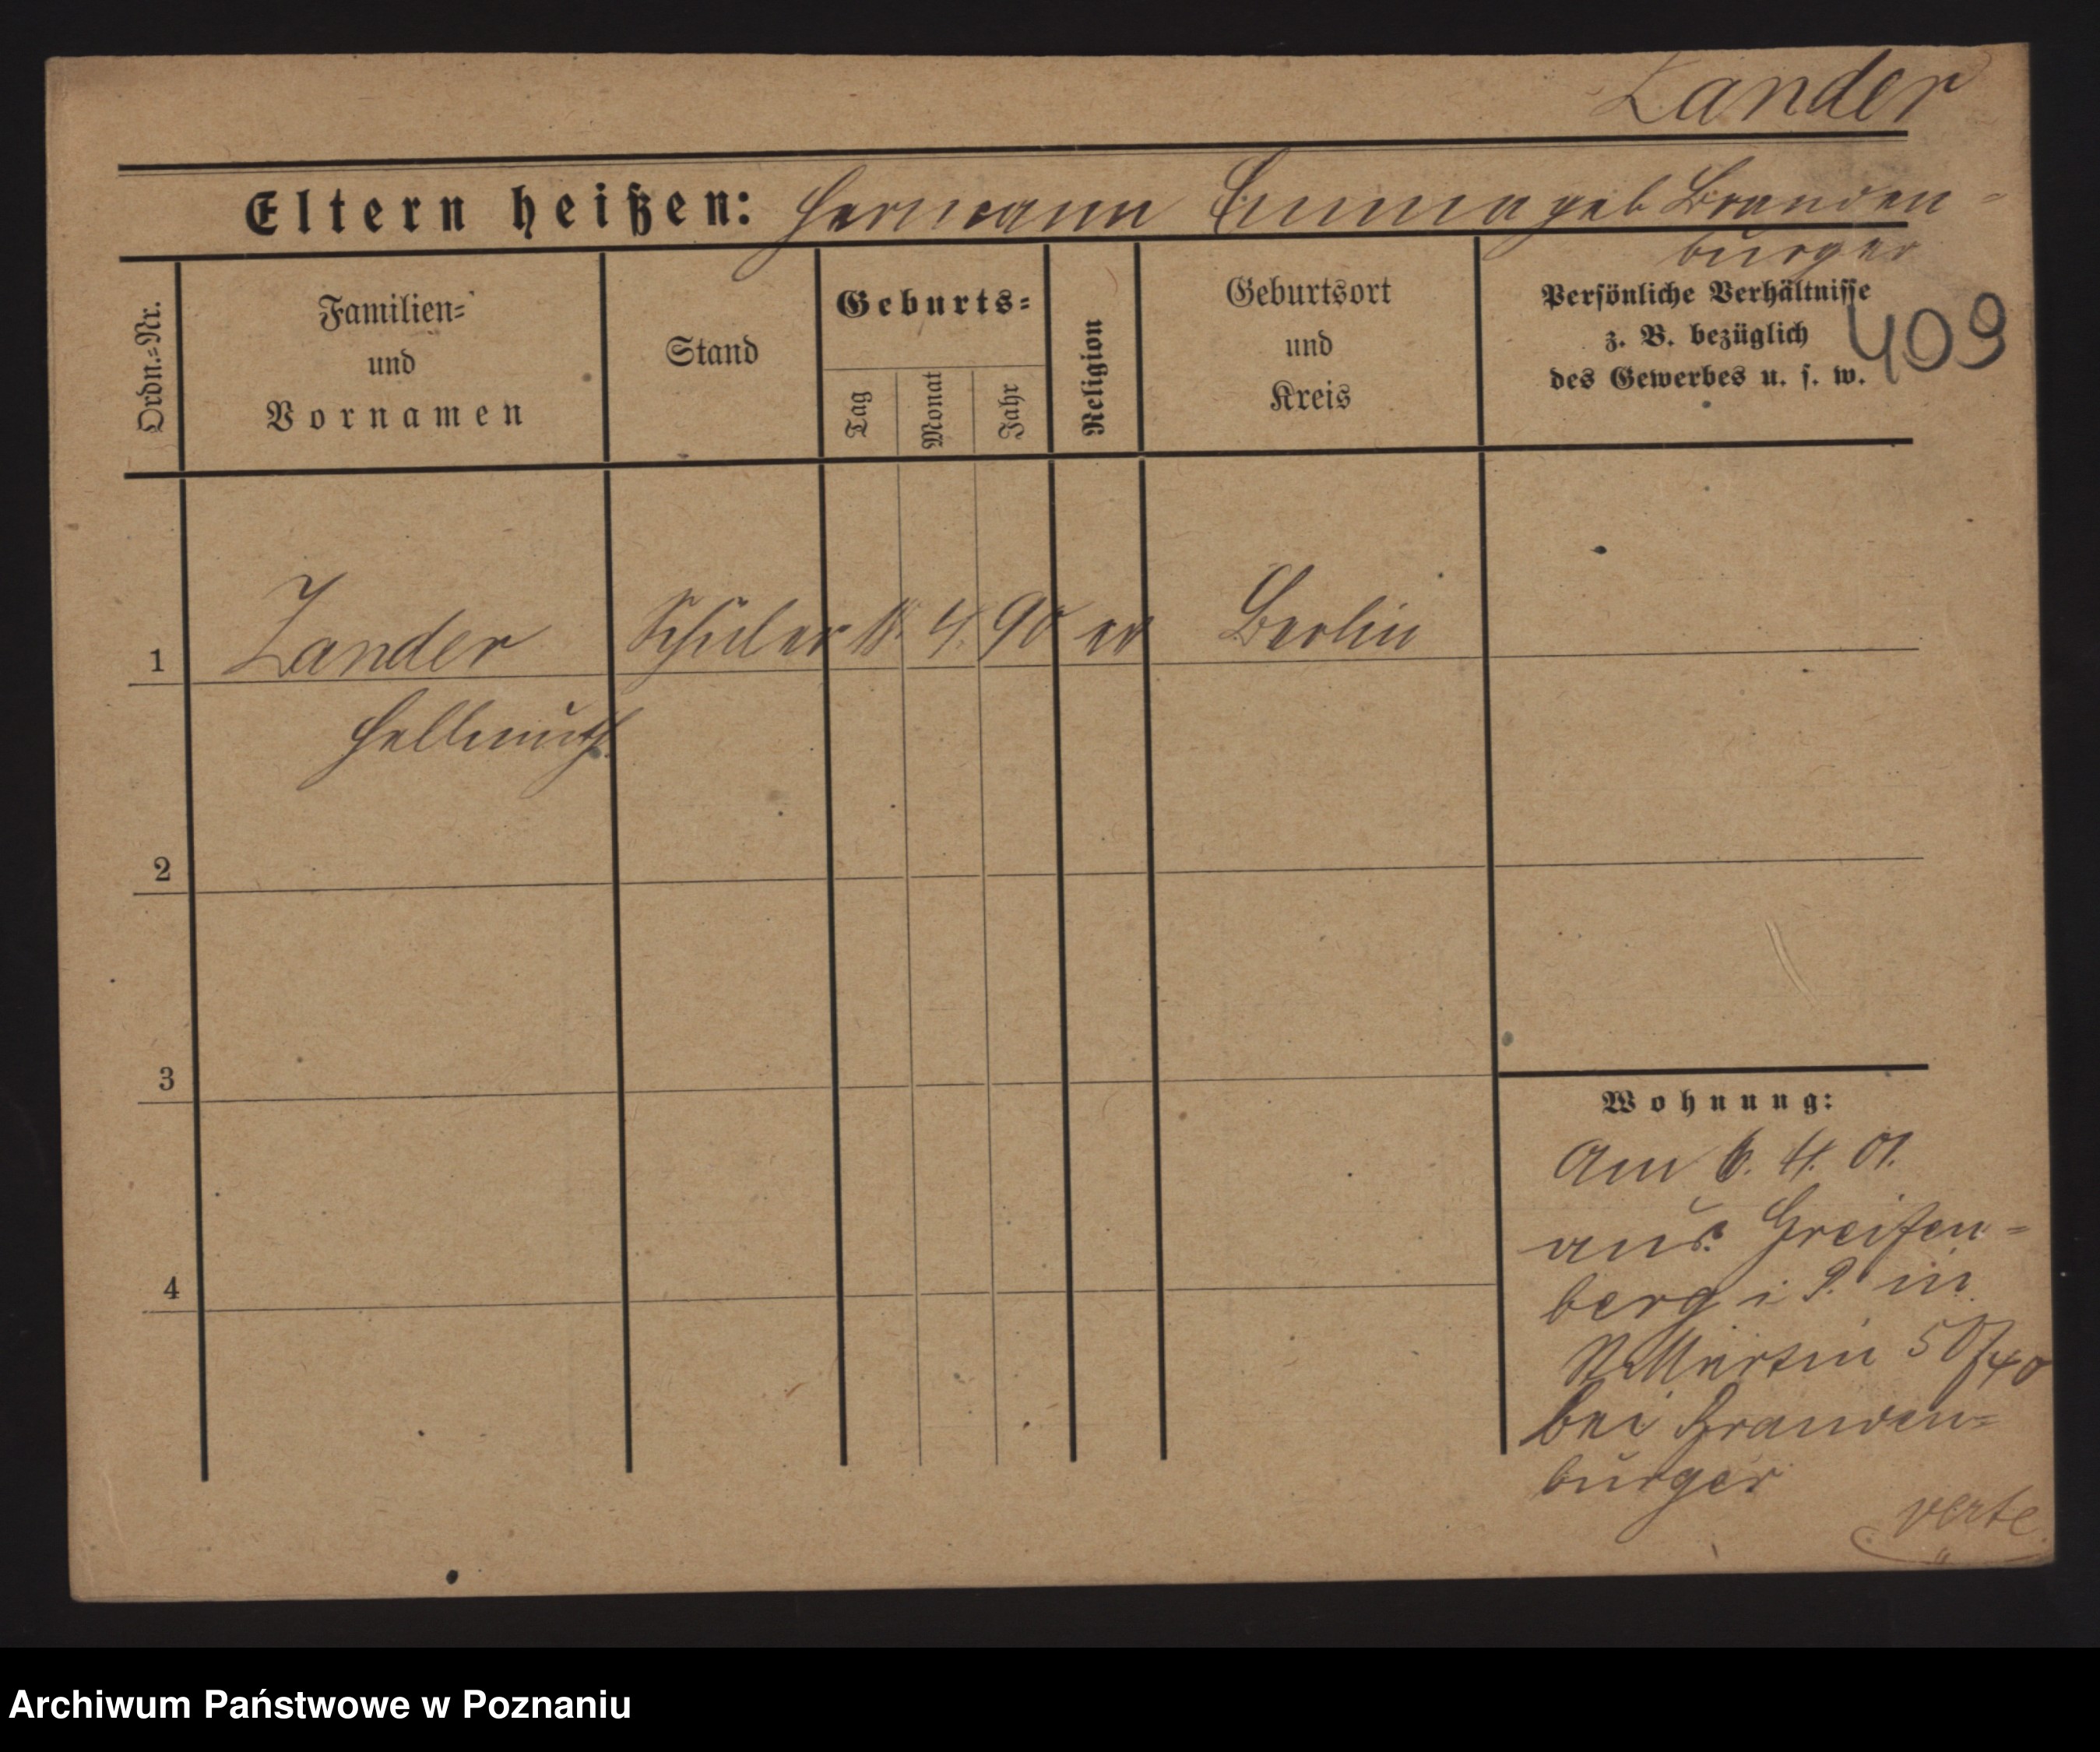 Zander
Eltern heißen: Hermann Emma geb Branden-
burger
Ordn.=Nr.
Familien=
und
Vornamen
Stand
Geburts=
Tag
Monat
Jahr
Religion
Geburtsort
und
Kreis
Persönliche Verhältnisse
z. B. bezüglich
des Gewerbes u. s. w.
409
1 Zander Schüler 4. 90 ev Berlin
Hellmuth
2
3
4
Wohnung:
Am 6. 4. 01.
aus Greifen-
berg i P. in
St Martin 50/40
bei Branden=
burger
verte
Archiwum Państwowe w Poznaniu